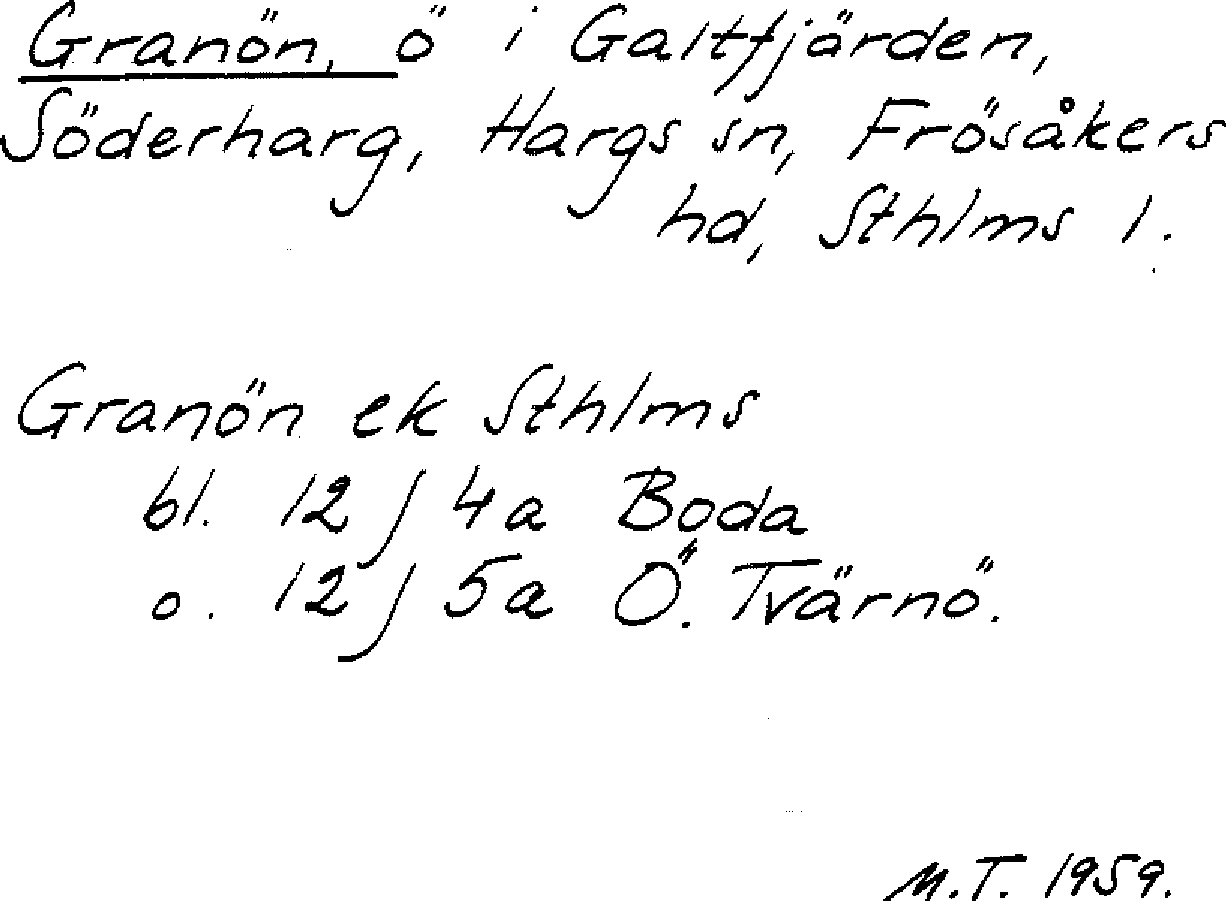 Granön, ö i Galtfjärden,
Söderharg, Hargs sn, Frösåkers
hd, Sthlms l.
Granön ek Sthlms
bl. 12 j 4a Boda
o. 12 j 5a Ö. Tvärnö.
M.T. 1959.